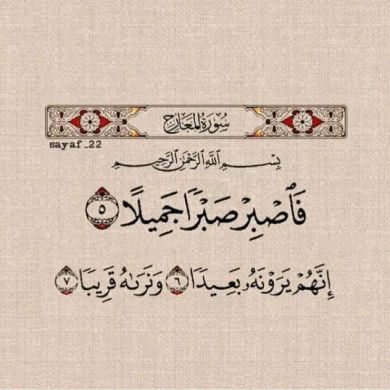 سُورَةُ المَعَارِجِ
sayaf_22
بِسْمِ اللَّهِ الرَّحْمَٰنِ الرَّحِيمِ
فَٱصْبِرْ صَبْرًا جَمِيلًا ٥
إِنَّهُمْ يَرَوْنَهُۥ بَعِيدًا ٦ وَنَرَىٰهُ قَرِيبًا ٧